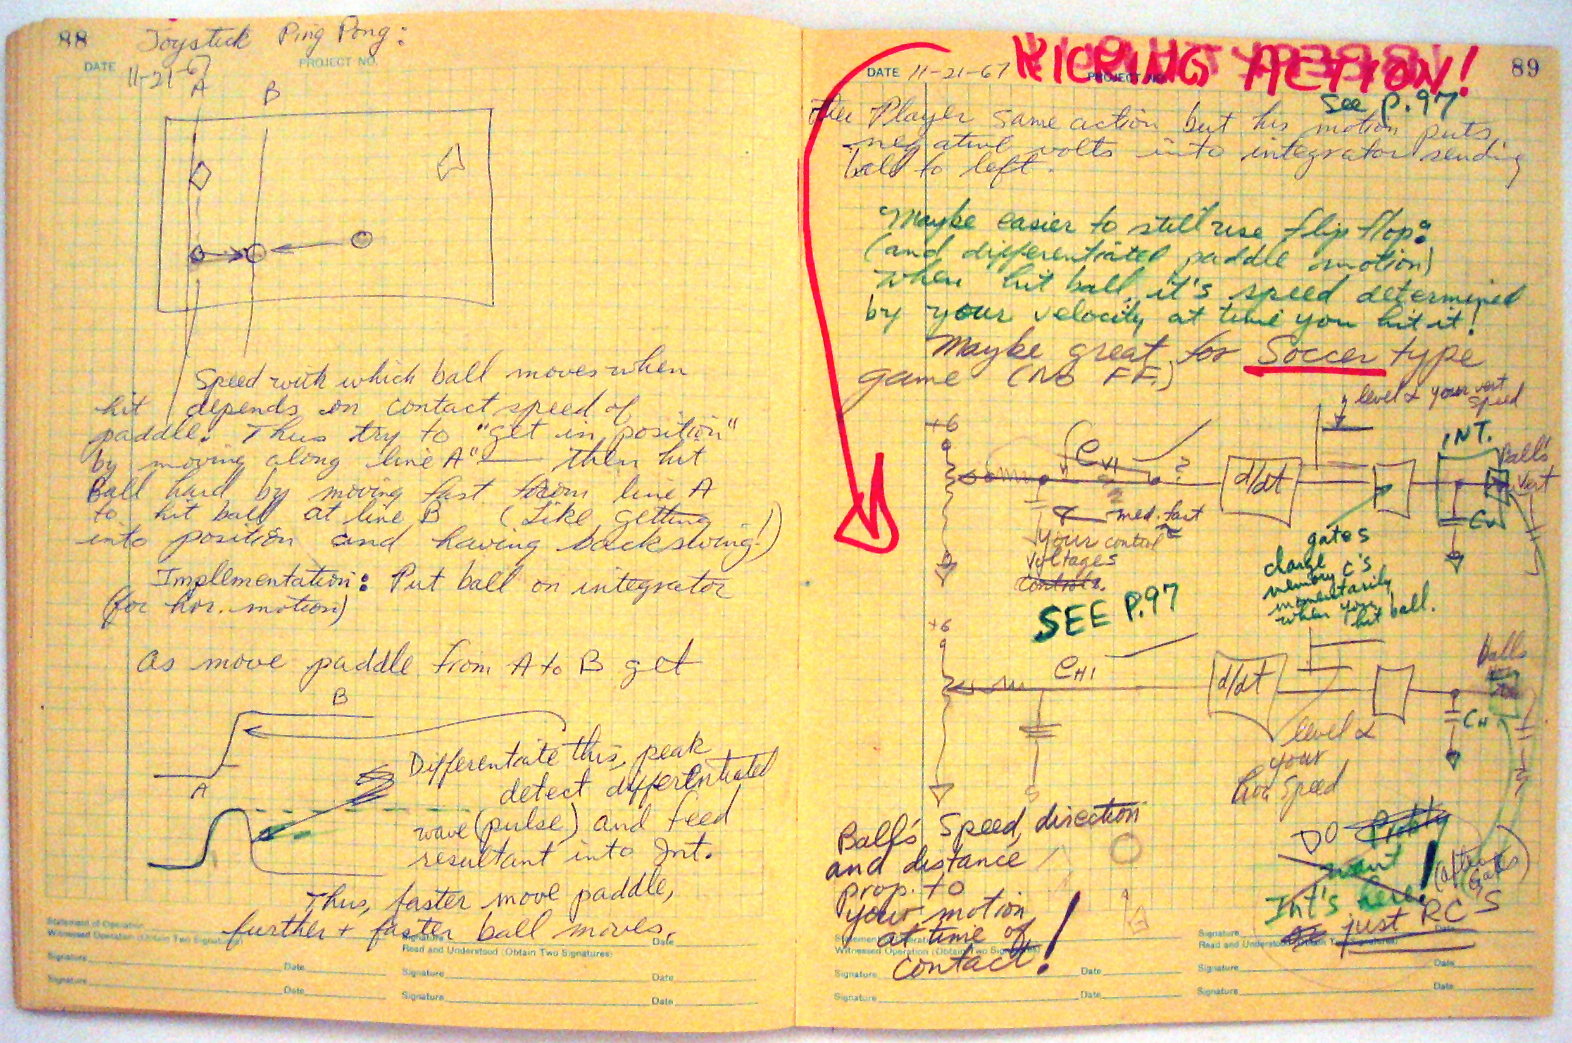 88
Joystick Ping Pong:
DATE
11-21-67
PROJECT NO.
A
B
Speed with which ball moves when
hit depends on contact speed of
paddle. Thus try to "get in position"
by moving along line A" — then hit
Ball hard by moving fast from line A
to hit ball at line B (Like getting
into position and having backswing!)
Implementation: Put ball on integrator
(for hor. motion)
As move paddle from A to B get
B
A
Differentiate this, peak
detect differentiated
wave (pulse) and feed
resultant into Int.
Thus, faster move paddle,
further + faster ball moves.
Statement of Operation
Witnessed Operation (Obtain Two Signatures)
Signature Date
Read and Understood (Obtain Two Signatures)
Signature Date Signature Date
Signature Date Signature Date
89
DATE 11-21-67
PROJECT NO.
KICKING ACTION!
See P.97
Player same action but his motion puts
negative volts into integrator sending
ball to left.
Maybe easier to still use flip flop:
(and differentiated paddle motion)
When hit ball, it's speed determined
by your velocity at time you hit it!
Maybe great for Soccer type
game (No FF.)
level ∝ your vert
speed
+6
eV1
?
d/dt
INT.
Ball's
Vert
CV
med. fast
your control
voltages
controls.
gates
charge
memory C's
momentarily
when you
hit ball.
SEE P.97
+6
eH1
d/dt
Balls
CH
level ∝
your
Hor Speed
Ball's Speed, direction
and distance
prop. to
your motion
at time of
contact!
DO Probly
want
Int's here! (after
Gates)
just RC'S
Witnessed Operation (Obtain Two Signatures)
Signature Date
Read and Understood (Obtain Two Signatures)
Signature Date Signature Date
Signature Date Signature Date